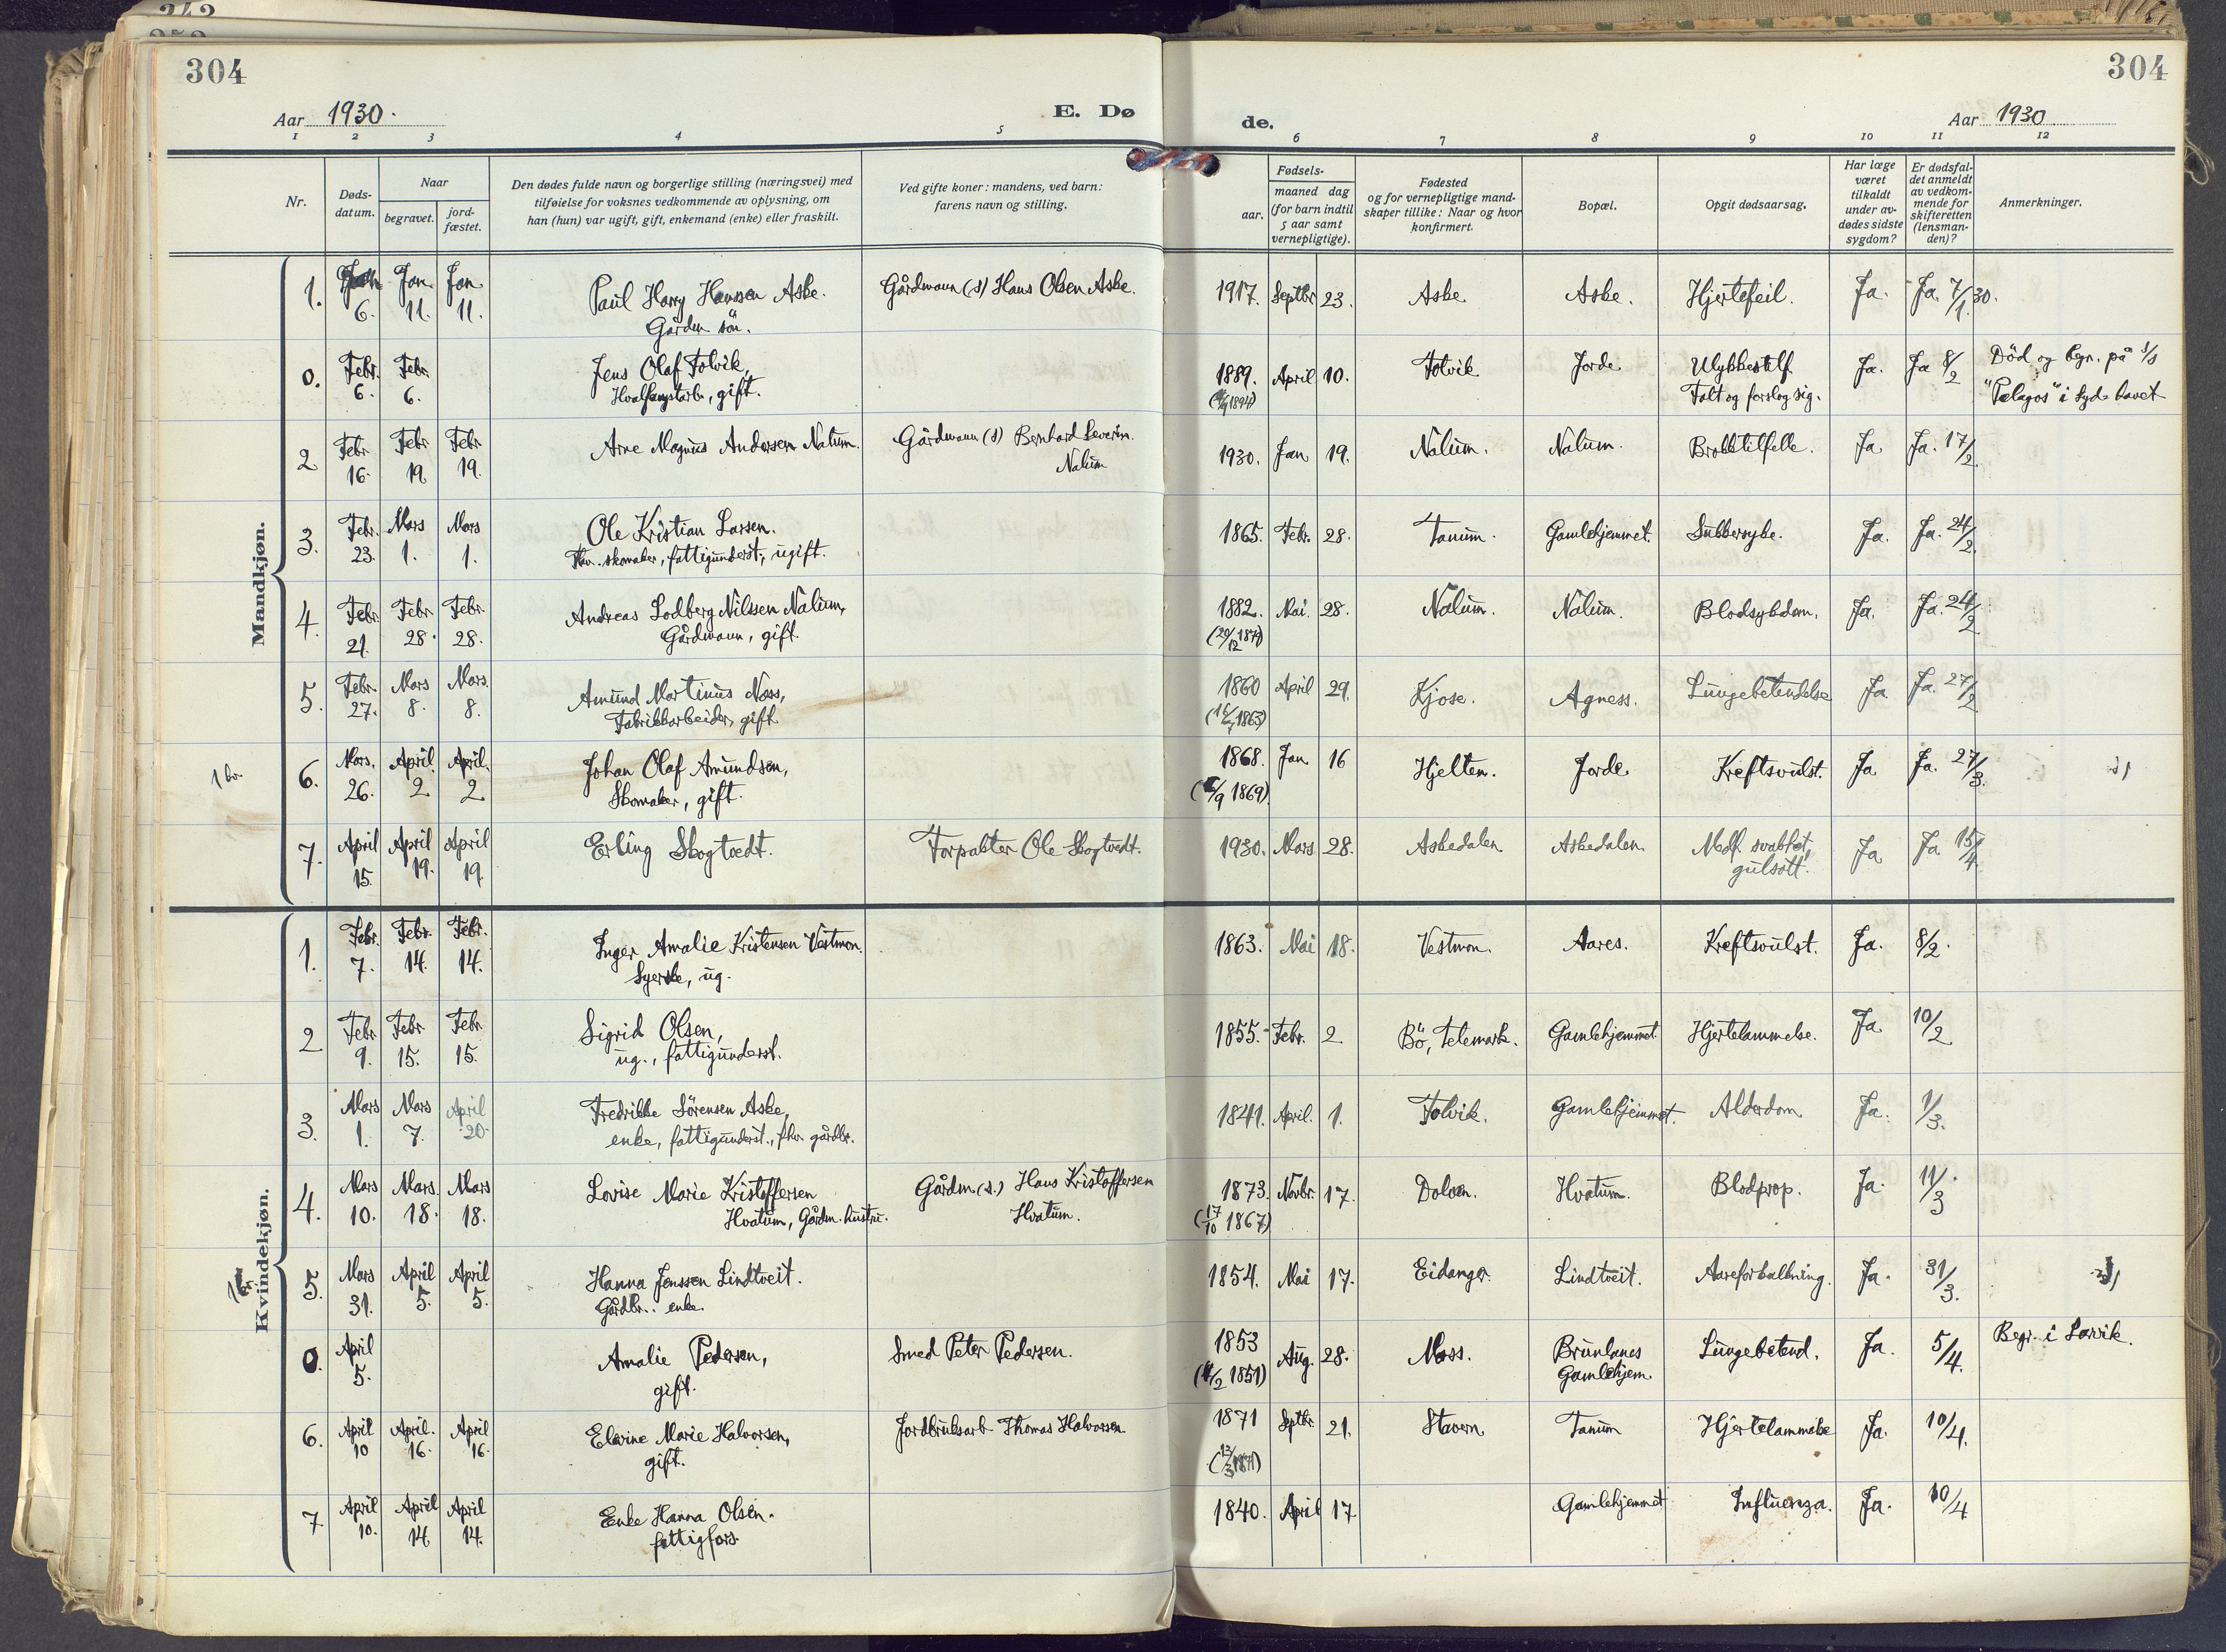 304
304
Aar 1930.
E. Dø
de.
Aar 1930
1 2 3 4 5 6 7 8 9 10 11 12
Nr.
Døds-
datum.
Naar
begravet.
jord-
fæstet.
Den dødes fulde navn og borgerlige stilling (næringsvei) med
tilføielse for voksnes vedkommende av oplysning, om
han (hun) var ugift, gift, enkemand (enke) eller fraskilt.
Ved gifte koner: mandens, ved barn:
farens navn og stilling.
Fødsels-
aar.
maaned dag
(for barn indtil
5 aar samt
vernepligtige).
Fødested
og for vernepligtige mand-
skaper tillike: Naar og hvor
konfirmert.
Bopæl.
Opgit dødsaarsag.
Har læge
været
tilkaldt
under av-
dødes sidste
sygdom?
Er dødsfal-
det anmeldt
av vedkom-
mende for
skifteretten
(lensman-
den)?
Anmerkninger.
Mandkjøn.
1. Jan 6. Jan. 11. Jan 11. Paul Harry Hanssen Aske. Gårdmann (s) Hans Olsen Aske. 1917. Septbr 23. Aske. Aske. Hjertefeil. Ja. Ja. 7/1 30.
Gårdm. sön.
0. Febr. 6. Febr. 6. Jens Olaf Tolvik, 1889. April 10. Tolvik Jorde. Ulykkestilf. Ja. Ja 8/2 Död og begr. på s/s
Hvalfangstarb., gift. Falt og forslog sig. "Pelagos" i Sydhavet
2 Febr. 16. Febr. 19. Febr. 19. Arne Magnus Andersen Nalum. Gårdmann (s) Bernhard Severin. 1930. Jan 19. Nalum. Nalum. Brokktilfelle. Ja Ja. 17/2.
Nalum
3. Febr. 23. Mars 1. Mars 1. Ole Kristian Larsen. 1865. Febr. 28. Tanum. Gamlehjemmet. Sukkersyke. Ja. Ja. 24/2.
Fhv. skomaker, fattigunderst., ugift.
4. Febr. 21. Febr. 28. Febr. 28. Andreas Lodberg Nilssen Nalum, 1882. Mai. 28. Nalum. Nalum. Blodsykdom. Ja. Ja. 24/2
Gårdmann, gift. (20/12 1874)
5. Febr. 27. Mars 8. Mars. 8. Amund Martinus Næss, 1860 April 29. Kjose. Agness. Lungebetendelse Ja Ja. 27/2
Fabrikkarbeider, gift.
6. Mars. 26. April. 2. April. 2. Johan Olaf Amundsen, 1868. Jan 16 Hjelten. Jorde. Kreftsvulst. Ja Ja. 27/3.
Skomaker, gift.
7. April 15. April 19. April 19. Erling Skogtvedt. Forpakter Ole Skogtvedt. 1930. Mars 28. Askedalen Askedalen. Medf. svakhet, Ja Ja 15/4.
gulsott!
Kvindekjøn.
1. Febr. 7. Febr. 14. Febr. 14. Inger Amalie Kristensen Vestmon. 1863. Mai 18. Vestmon. Aares. Kreftsvulst. Ja. 8/2.
Syerske, ug.
2 Febr. 9. Febr 15. Febr 15. Sigrid Olsen, 1855. Febr. 2 Bö, Telemark. Gamlehjemmet Hjertelammelse. Ja 10/2
ug., fattigunderst.
3. Mars 1. Mars 7. April 20. Fredrikke Sörensen Aske, 1841. April. 1. Tolvik. Gamlehjemmet. Alderdom. Ja. 1/3.
enke, fattigunderst., fhv. gårdbr.
4. Mars 10. Mars. 18. Mars 18. Lovise Marie Kristoffersen Gårdm. (s.) Hans Kristoffersen 1873. Novbr. 17. Dolven. Hvatum. Blodprop. Ja. 11/3
Hvatum, Gårdm. hustru. Hvatum. (17/10 1867)
5. Mars 31. April 5. April 5. Hanna Jenssen Lindtveit. 1854. Mai 17. Eidanger. Lindtveit. Aareforkalkning. Ja. 31/3.
Gårdbr. enke.
0. April 5. Amalie Pedersen, Smed Peter Pedersen. 1853 Aug. 28. Moss. Brunlanes Lungebetend. Ja. 5/4. Begr. i Larvik.
gift. Gamlehjem.
6. April 10 April. 16. April 16. Elevine Marie Halvorsen, Jordbruksarb. Thomas Halvorsen 1871 Septbr. 21. Stavern Tanum Hjertelammelse Ja. 10/4.
gift.
7 April 10. April 14. April 14. Enke Hanna Olsen. 1840. April 17 Gamlehjemmet Influenza. Ja. 10/4
fattigfors.